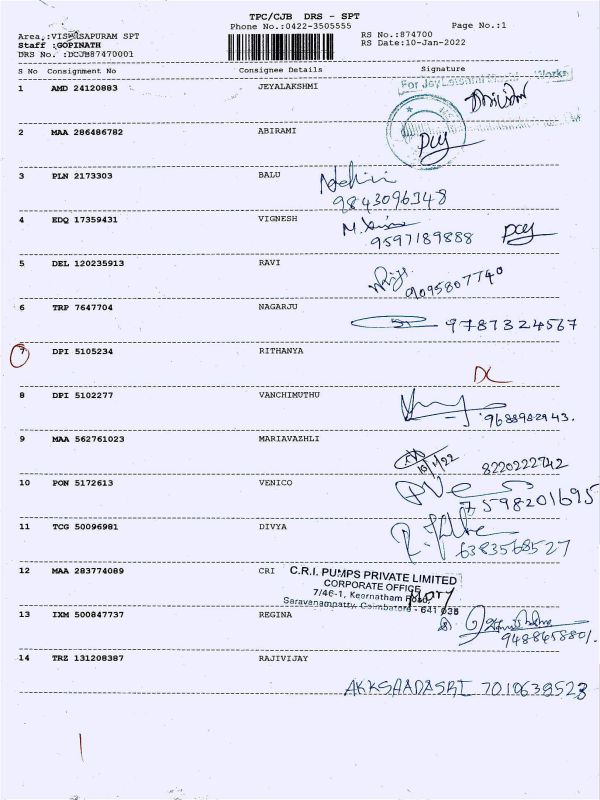 TPC/CJB DRS - SPT
Phone No.:0422-3505555 Page No.:1
Area.:VISWASAPURAM SPT RS No.:874700
Staff :GOPINATH RS Date:10-Jan-2022
DRS No. :DCJB87470001
S No Consignment No Consignee Details Signature
1 AMD 24120883 JEYALAKSHMI
2 MAA 286486782 ABIRAMI
3 PLN 2173303 BALU
9843096348
4 EDQ 17359431 VIGNESH
9597189888
5 DEL 120235913 RAVI
9095807740
6 TRP 7647704 NAGARJU
9787324567
7 DPI 5105234 RITHANYA
DC
8 DPI 5102277 VANCHIMUTHU
9688982943.
9 MAA 562761023 MARIAVAZHLI
10/1/22 8220222742
10 PON 5172613 VENICO
7598201695
11 TCG 50096981 DIVYA
6383568527
12 MAA 283774089 CRI
C.R.I. PUMPS PRIVATE LIMITED
CORPORATE OFFICE
7/46-1, Keernatham Road,
Saravanampatty, Coimbatore - 641 035
Mory
13 IXM 500847737 REGINA
9488458801.
14 TRZ 131208387 RAJIVIJAY
AKKSAADASRI 7010638523